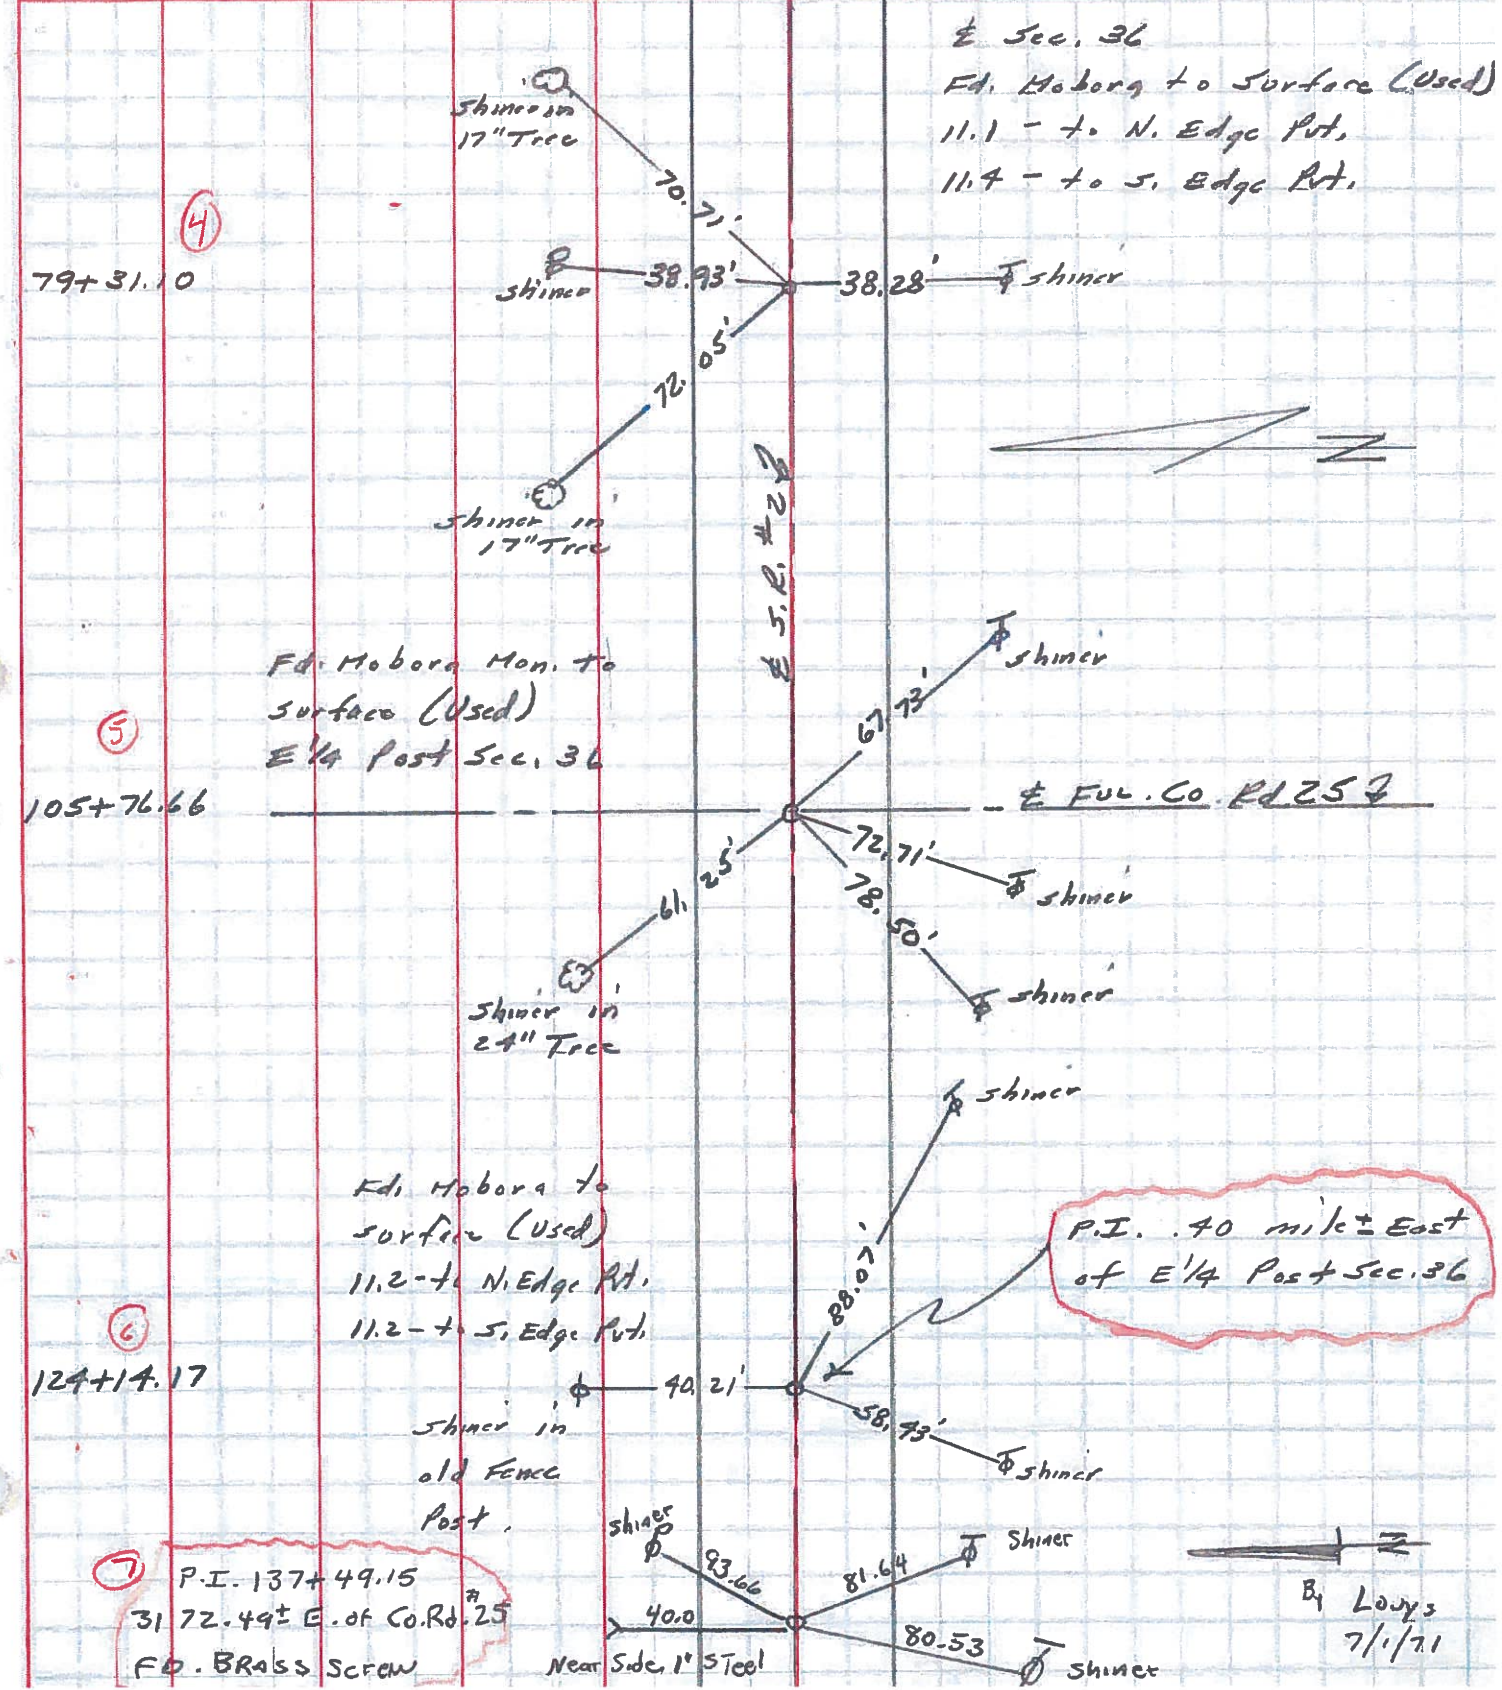 ℄ Sec. 36
Fd. Moborg to Surface (Used)
11.1 - to N. Edge Pvt.
11.4 - to S. Edge Pvt.
Shiner in
17" Tree
70.71'
4
79+31.10
shiner
38.93'
38.28'
shiner
72.05'
shiner in
17" Tree
N
℄ S.R. #2
shiner
67.73'
Fd. Moborg Mon. to
surface (Used)
E 1/4 Post Sec. 36
5
105+76.66
℄ FUL. Co. Rd 25
72.71'
shiner
78.50'
shiner
61.25'
shiner in
24" Tree
shiner
88.07'
Fd. Moborg to
surface (Used)
11.2 - to N. Edge Pvt.
11.2 - to S. Edge Pvt.
P.I. .40 mile ± East
of E 1/4 Post Sec. 36
6
124+14.17
40.21'
58.43'
shiner
shiner in
old Fence
Post.
7
P.I. 137+49.15
3172.49± E. of Co. Rd. #25
FD. BRASS Screw
shiner
93.66
81.64
Shiner
40.0
Near Side, 1" Steel
80.53
shiner
N
By
7/1/71